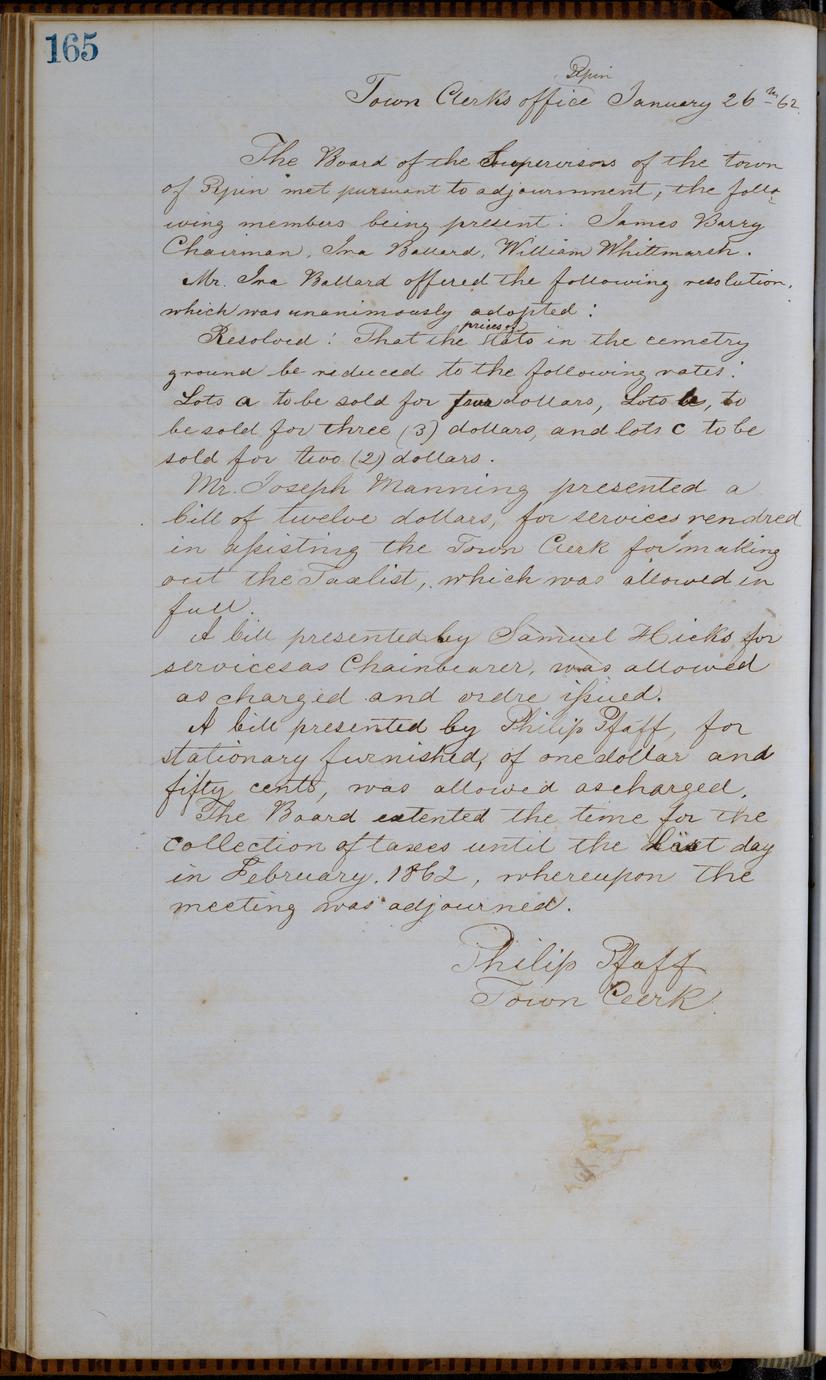 165
Pepin
Town Clerks office January 26th 62.
The Board of the Supervisors of the town
of Pepin met pursuant to adjournment, the follo-
wing members being present: James Barry
Chairman, Ira Ballard, William Whittmarsh.
Mr. Ira Ballard offered the following resolution,
which was unanimously adopted:
prices of
Resolved: That the lots in the cemetry
ground be reduced to the following rates:
Lots a to be sold for four dollars, Lots b, to
be sold for three (3) dollars, and lots c to be
sold for two (2) dollars.
Mr. Joseph Manning presented a
bill of twelve dollars, for services rendred
in assisting the Town Clerk for making
out the Taxlist, which was allowed in
full.
A bill presented by Samuel Hicks for
services as Chainbearer, was allowed
as charged and ordre issued.
A bill presented by Philip Pfaff, for
stationary furnished, of one dollar and
fifty cents, was allowed as charged.
The Board extented the time for the
collection of taxes until the day
in February. 1862, whereupon the
meeting was adjourned.
Philip Pfaff
Town Clerk.